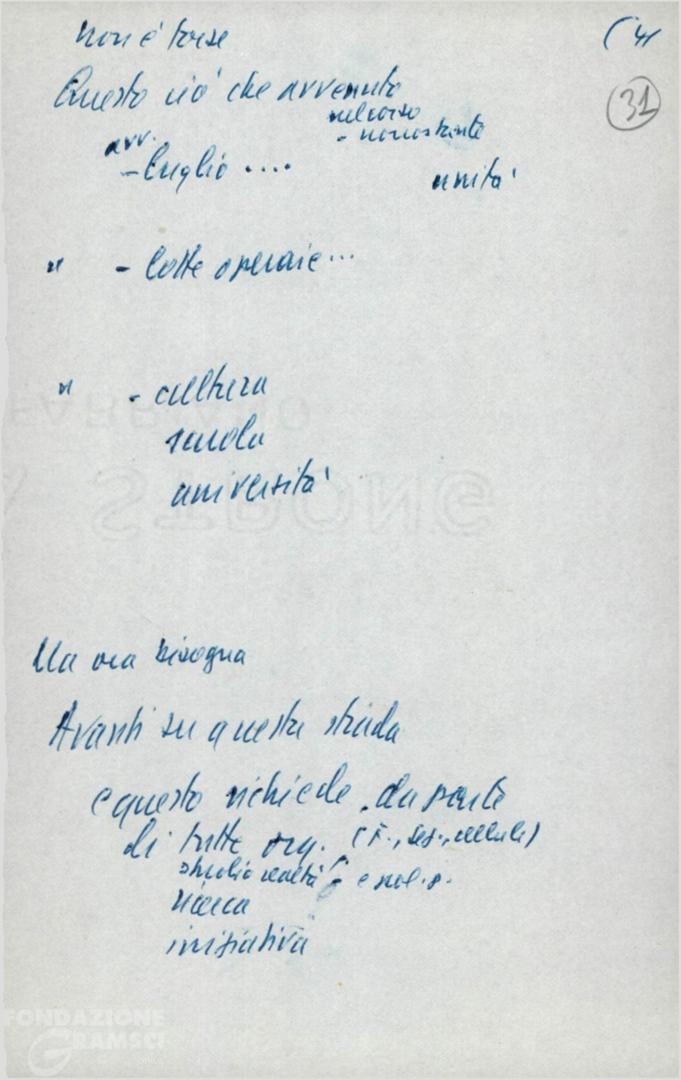 non è forse
(4
Questo ciò che avvenuto
31
nel corso
- nonostante
avv.
- luglio ....
unità
" - lotte operaie...
" - cultura
scuola
università
FARRIANO
STRONG
Ma ora bisogna
Avanti su questa strada
e questo richiede da parte
di tutte org. (F., sez., cellule)
studio realtà e pol. p.
ricerca
iniziativa
FONDAZIONE
GRAMSCI